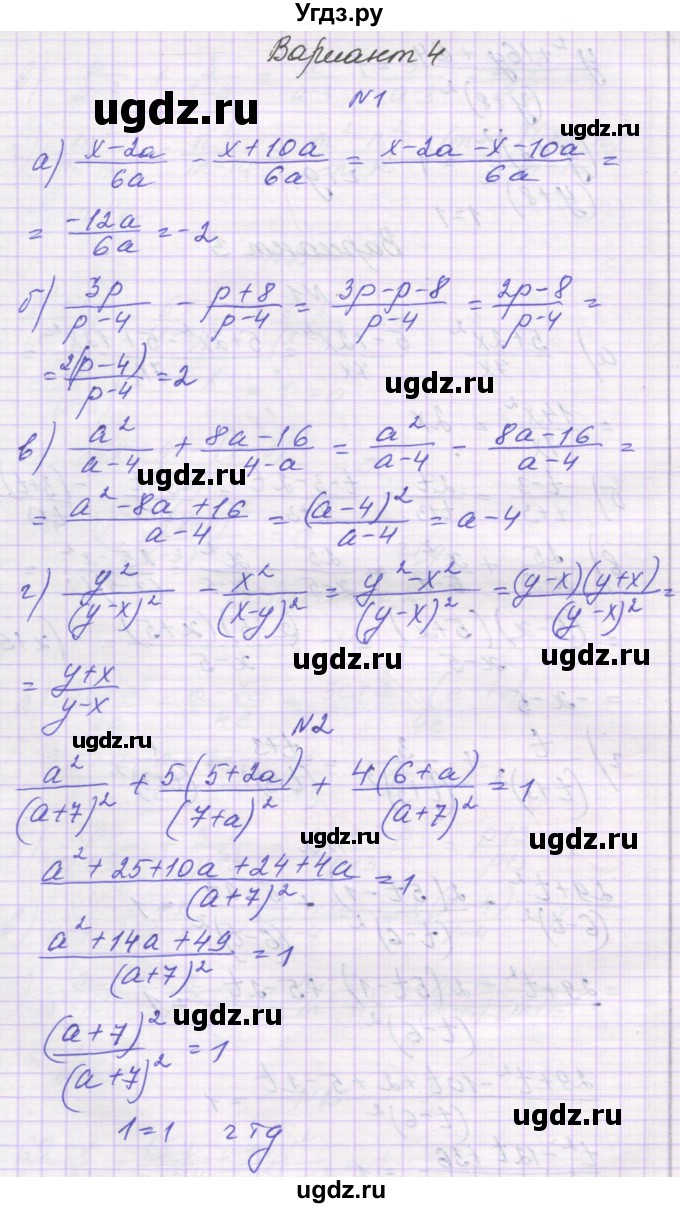 Угдз.ру
Вариант 4
ugdz.ru
№1
а) (x-2a)/(6a) - (x+10a)/(6a) = (x-2a-x-10a)/(6a) =
= (-12a)/(6a) = -2
ugdz.ru
б) (3p)/(p-4) - (p+8)/(p-4) = (3p-p-8)/(p-4) = (2p-8)/(p-4) =
= (2(p-4))/(p-4) = 2
ugdz.ru
в) (a²)/(a-4) + (8a-16)/(4-a) = (a²)/(a-4) - (8a-16)/(a-4) =
ugdz.ru
= (a²-8a+16)/(a-4) = ((a-4)²)/(a-4) = a-4
ugdz.ru
г) (y²)/((y-x)²) - (x²)/((x-y)²) = (y²-x²)/((y-x)²) = ((y-x)(y+x))/((y-x)²) =
ugdz.ru
ugdz.ru
= (y+x)/(y-x)
№2
ugdz.ru
(a²)/((a+7)²) + (5(5+2a))/((7+a)²) + (4(6+a))/((a+7)²) = 1
ugdz.ru
ugdz.ru
(a²+25+10a+24+4a)/((a+7)²) = 1
(a²+14a+49)/((a+7)²) = 1
ugdz.ru
ugdz.ru
((a+7)²)/((a+7)²) = 1
1=1 чтд
ugdz.ru
ugdz.ru
ugdz.ru